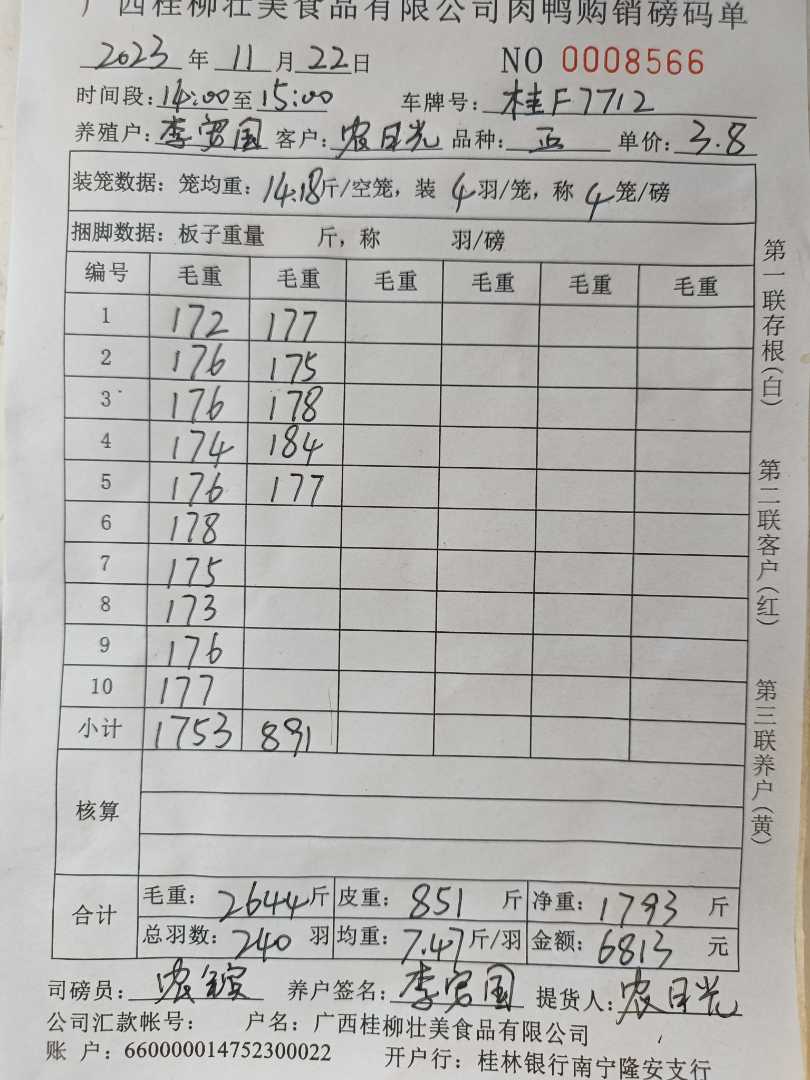 广西桂柳壮美食品有限公司肉鸭购销磅码单
2023年11月22日 NO 0008566
时间段:14:00至15:00 车牌号:桂F7712
养殖户:李宏国 客户:农日光 品种:正 单价:3.8
装笼数据:笼均重:14.18斤/空笼,装4羽/笼,称4笼/磅
捆脚数据:板子重量 斤,称 羽/磅
编号 毛重 毛重 毛重 毛重 毛重 毛重
1 172 177
2 176 175
3 176 178
4 174 184
5 176 177
6 178
7 175
8 173
9 176
10 177
小计 1753 891
核算
合计 毛重:2644斤 皮重:851斤 净重:1793斤
总羽数:240羽 均重:7.47斤/羽 金额:6813元
司磅员:农 养户签名:李宏国 提货人:农日光
公司汇款帐号: 户名:广西桂柳壮美食品有限公司
账 户:660000014752300022 开户行:桂林银行南宁隆安支行
第一联存根(白)
第二联客户(红)
第三联养户(黄)